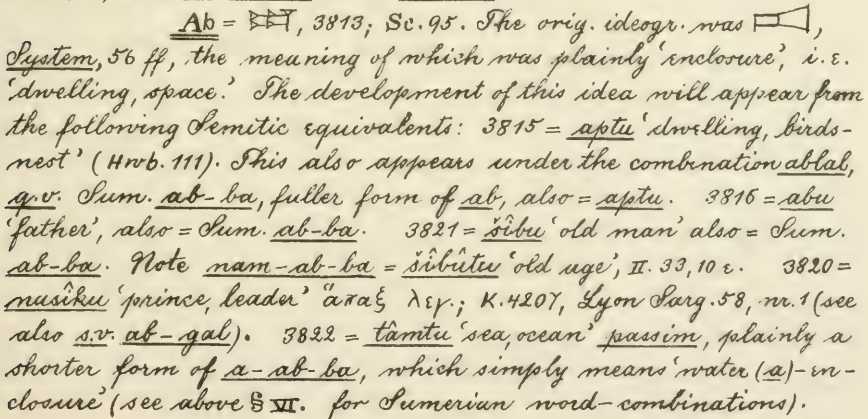 Ab = 𒀊, 3813; Sc. 95. The orig. ideogr. was ,
System, 56 ff, the meaning of which was plainly 'enclosure', i. e.
'dwelling, space.' The development of this idea will appear from
the following Semitic equivalents: 3815 = aptu 'dwelling, birds-
nest' (Hwb. 111). This also appears under the combination ablal,
q.v. Sum. ab-ba, fuller form of ab, also = aptu. 3816 = abu
'father', also = Sum. ab-ba. 3821 = šîbu 'old man' also = Sum.
ab-ba. Note nam-ab-ba = šîbûtu 'old age', II. 33, 10 e. 3820 =
nasîku 'prince, leader' ἅπαξ λεγ.; K. 4207, Lyon Sarg. 58, nr. 1 (see
also s.v. ab-gal). 3822 = tâmtu 'sea, ocean' passim, plainly a
shorter form of a-ab-ba, which simply means 'water (a)-en-
closure' (see above § VI. for Sumerian word-combinations).